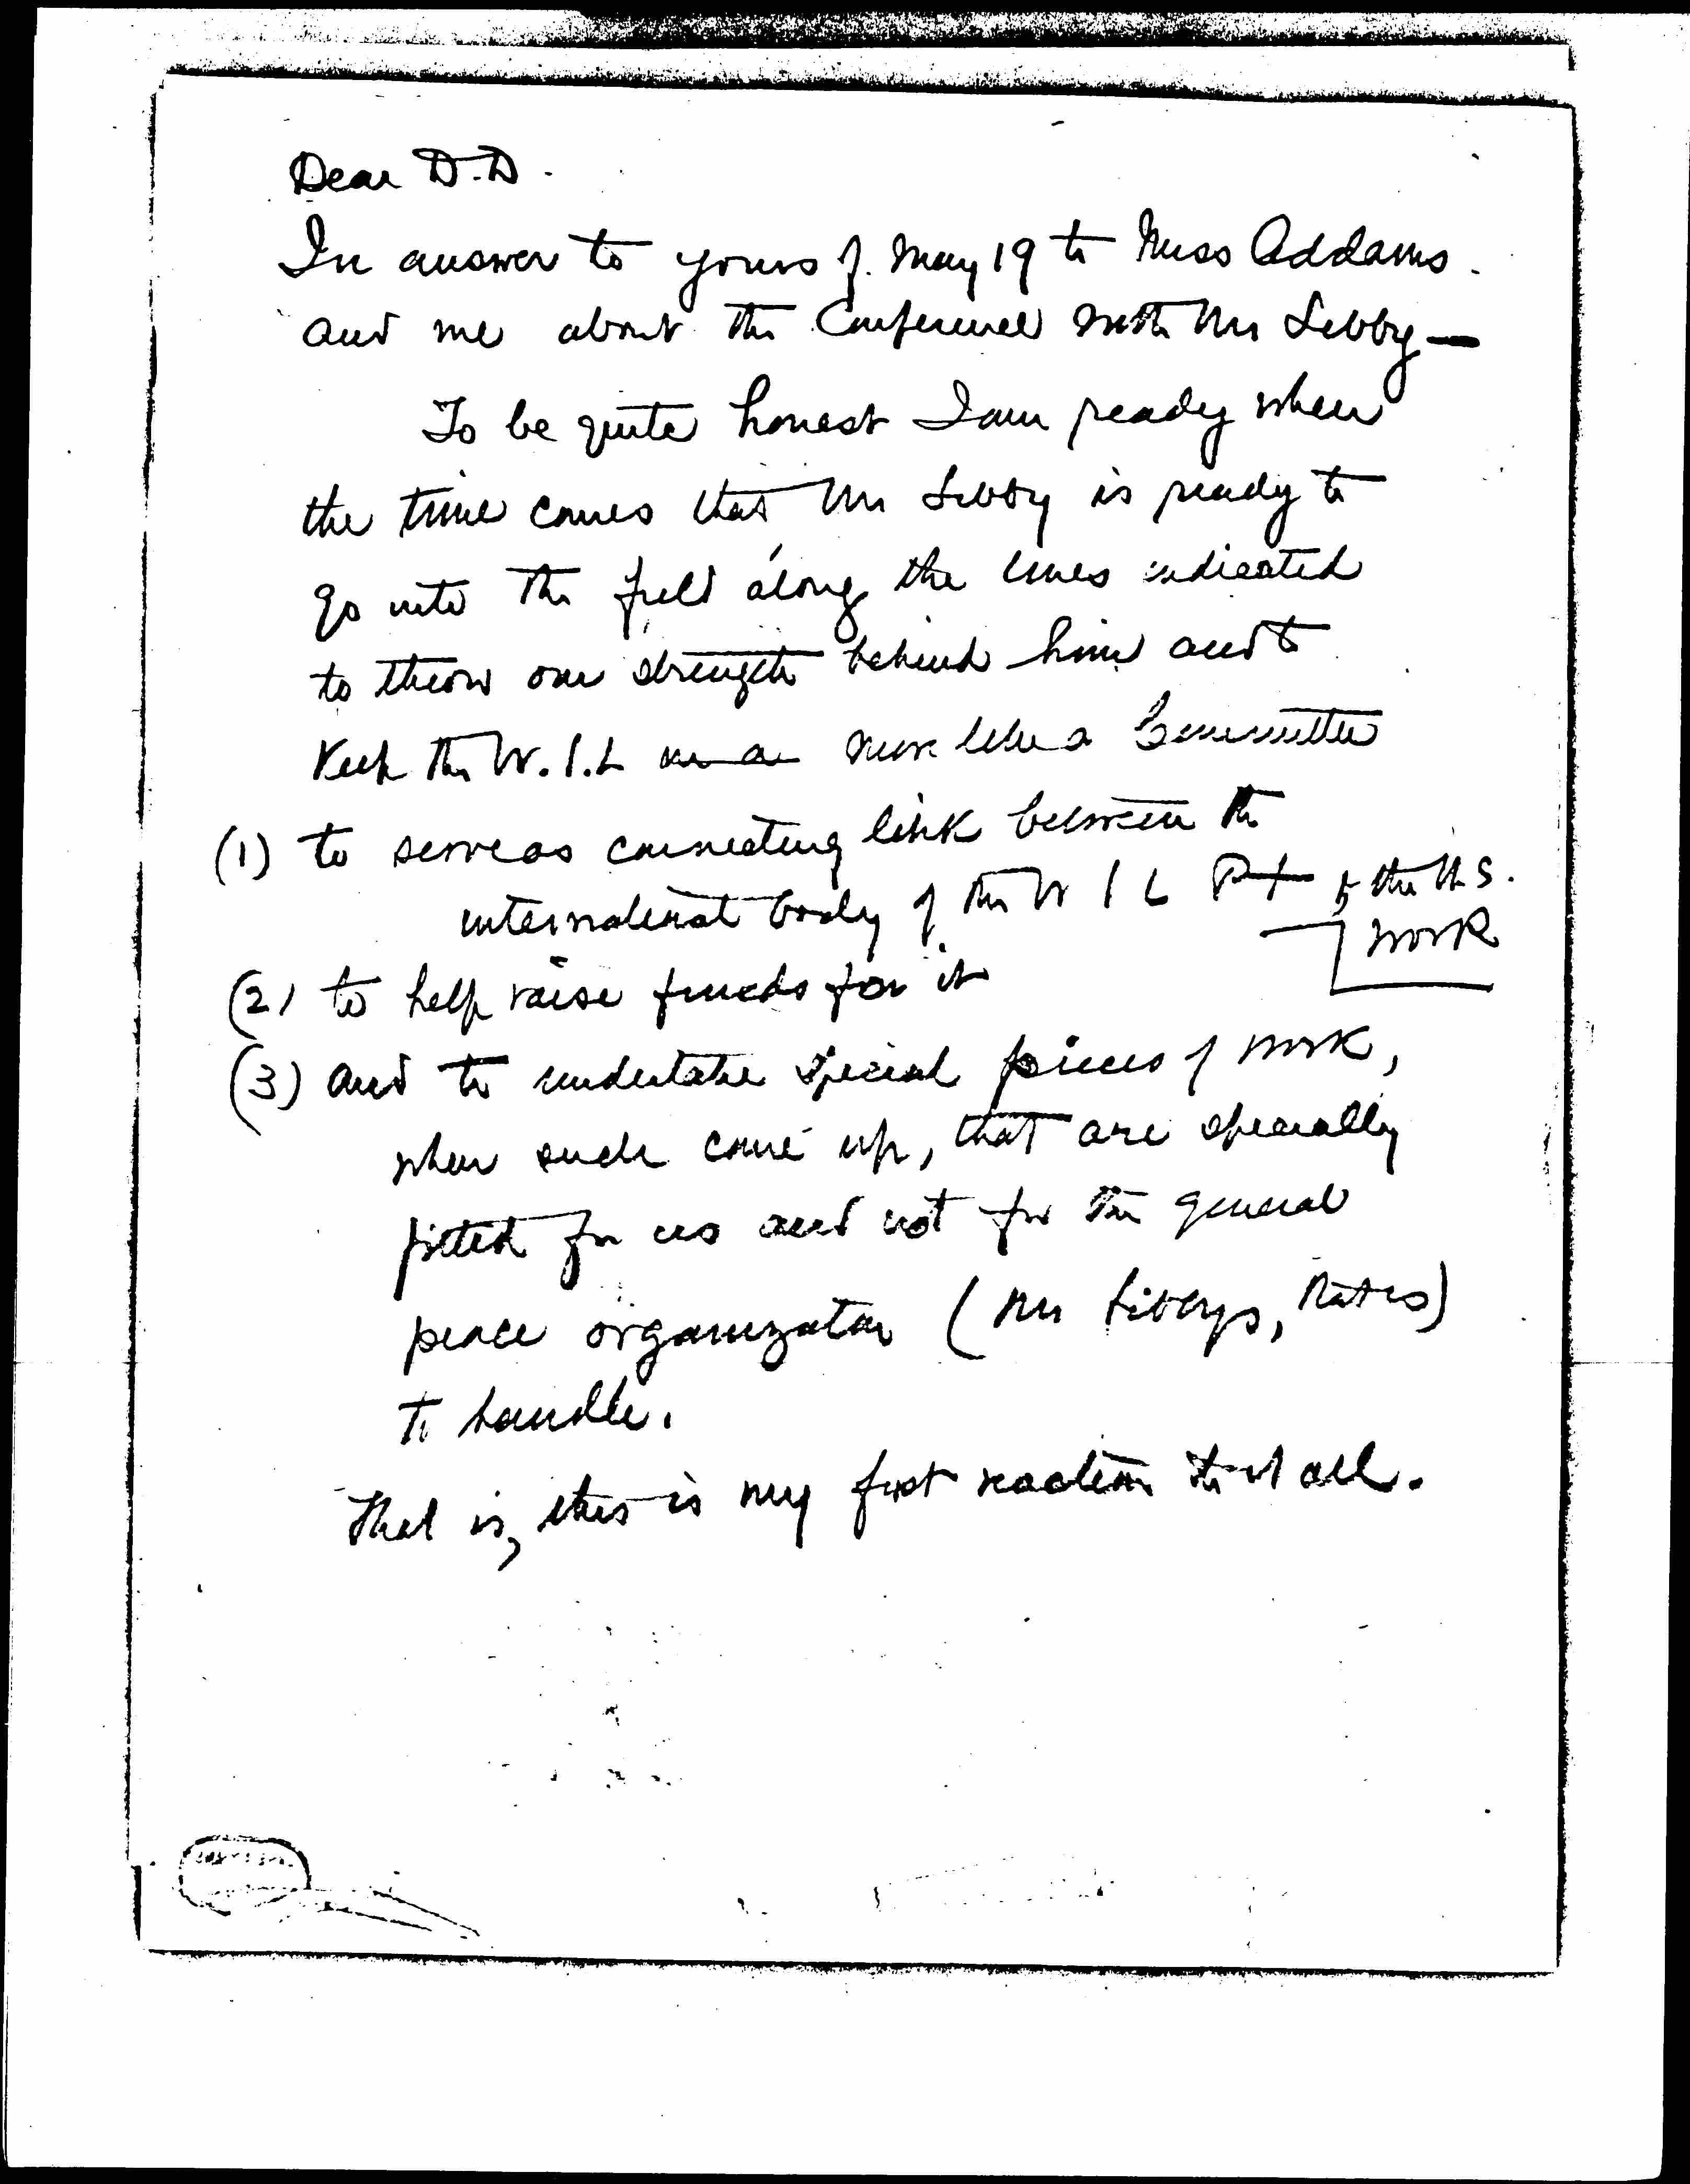 Dear D.D.
In answer to yours of May 19 to Miss Addams.
and me about the Conference with Mr Libby —
To be quite honest I am ready when
the time comes that Mr Libby is ready to
go into the field along the lines indicated
to throw our strength behind him and to
keep the W.I.L more like a Committee
(1) to serve as connecting link between the
international body of the W I L & the U.S.
work
(2) to help raise funds for it
(3) and to undertake special pieces of work,
when such come up, that are specially
fitted for us and not for the general
peace organization (Mr Libbys, that is)
to handle.
That is, this is my first reaction to it all.